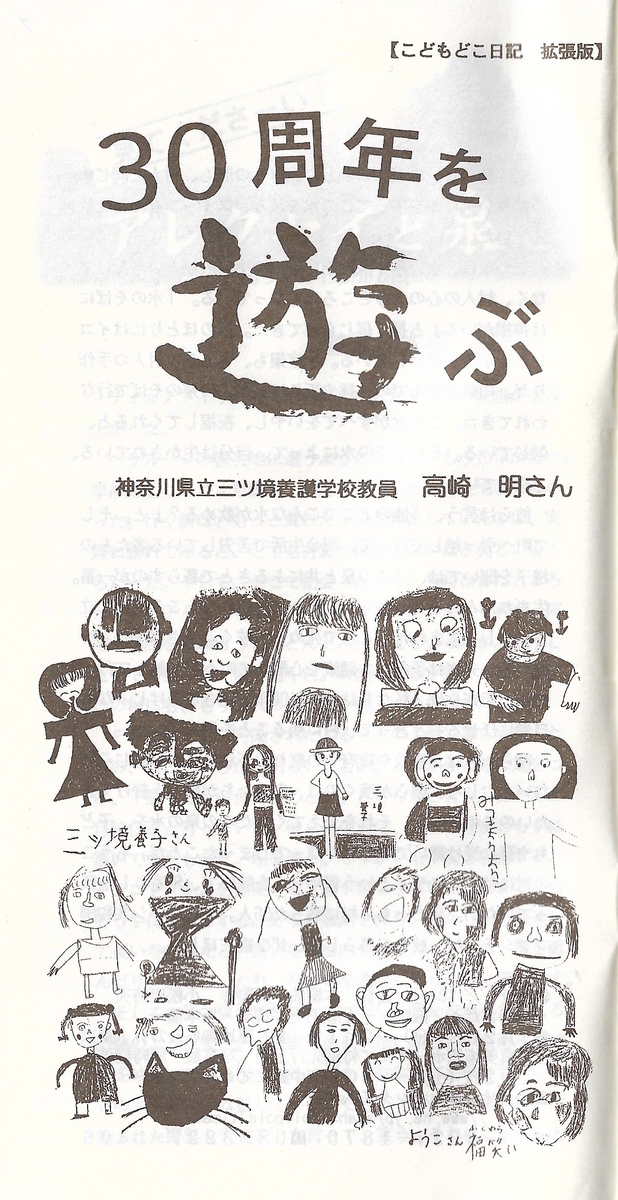 【こどもどこ日記　拡張版】
30周年を
遊ぶ
神奈川県立三ツ境養護学校教員　高崎　明さん
三ツ境養子さん
ようこさん